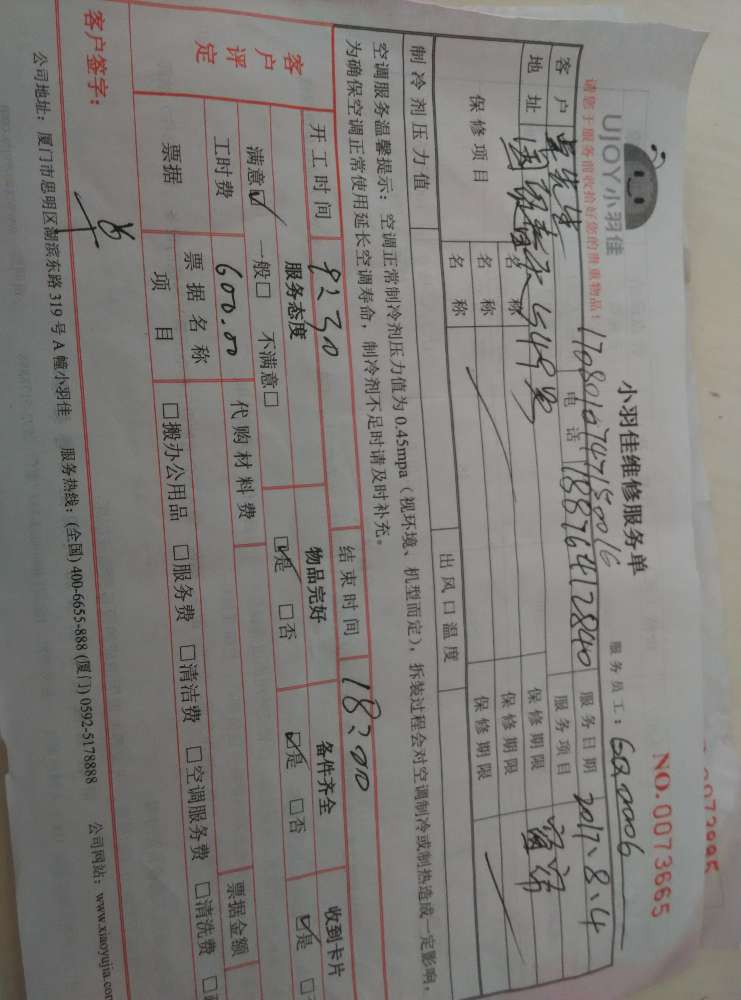 UJOY小羽佳
小羽佳维修服务单
NO. 0073665
请您于服务前收拾好您的贵重物品！
17080107471150016
服务员工：
客户 吴先生 电话 18876412840 服务日期 2017.8.4
地址 服务项目
保修项目 名称 保修期限
名称 保修期限
名称 保修期限
制冷剂压力值 出风口温度
空调服务温馨提示：空调正常制冷剂压力值为0.45mpa（视环境、机型而定），拆装过程会对空调制冷或制热造成一定影响，
为确保空调正常使用延长空调寿命，制冷剂不足时请及时补充。
开工时间 8:30 结束时间 18:00
客户评定 服务态度 物品完好 备件齐全 收到卡片
满意☑ 一般□ 不满意□ ☑是 □否 ☑是 □否 ☑是 □
工时费 600.00 代购材料费
票据 票据名称 票据金额
项目 □搬办公用品 □服务费 □清洁费 □空调服务费 □清洗费 □
客户签字：
公司地址：厦门市思明区湖滨东路319号A幢小羽佳 服务热线：(全国) 400-6655-888 (厦门) 0592-5178888 公司网站：www.xiaoyujia.com